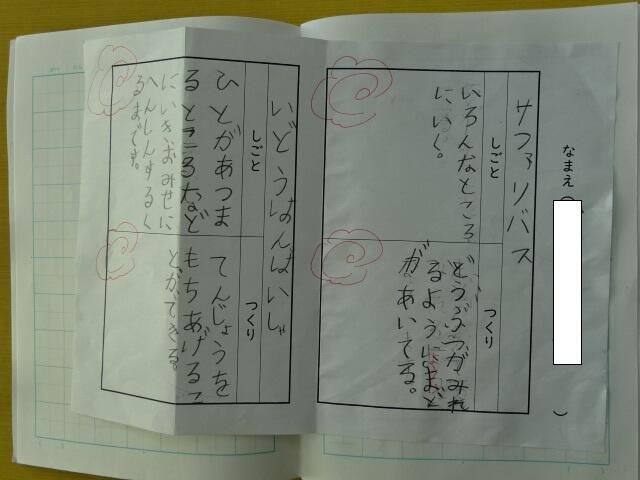 なまえ（　）
サファリバス
しごと
いろんなところ
にいく。
つくり
どうぶつがみれ
るようにまど
があいてる。
いどうはんばいしゃ
しごと
ひとがあつま
るところなど
にいきおみせに
へんしんするく
るまです。
つくり
てんじょうを
もちあげるこ
とができる。